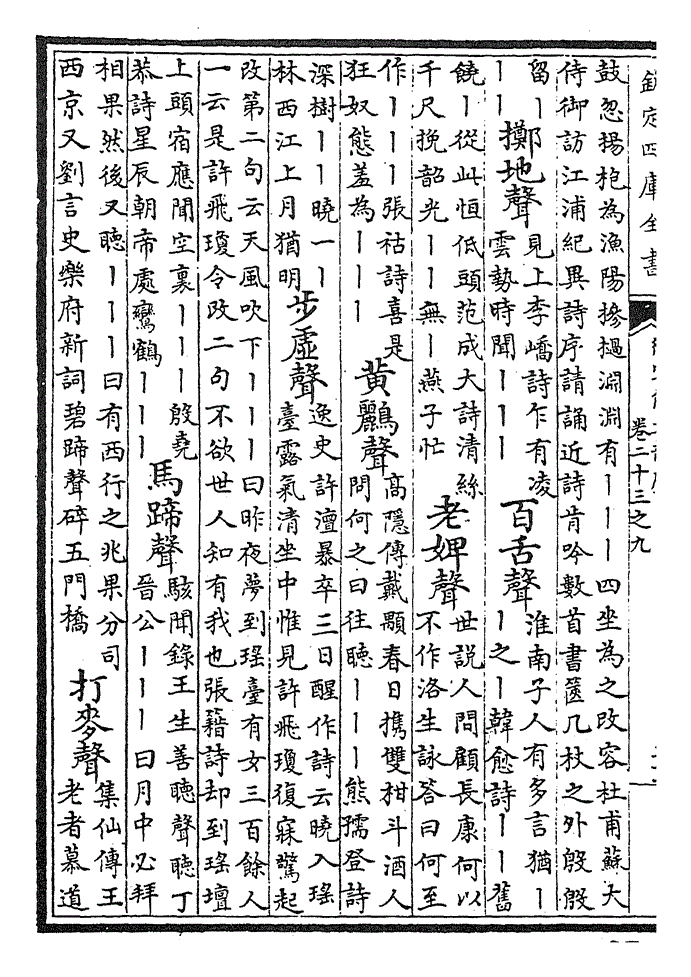 欽定四庫全書
卷二十三之九
鼓忽揚枹為漁陽摻撾淵淵有丨丨丨四坐為之改容杜甫蘇大
侍御訪江浦紀異詩序請誦近詩肯吟數首書篋几杖之外殷殷
留丨
丨丨
擲地聲
見上李嶠詩乍有凌
雲勢時聞丨丨丨
百舌聲
淮南子人有多言猶丨
丨之丨韓愈詩丨丨舊
饒丨從此恒低頭范成大詩清絲
千尺挽韶光丨丨無丨燕子忙
老婢聲
世說人問顧長康何以
不作洛生詠答曰何至
作丨丨丨張祜詩喜是
狂奴態羞為丨丨丨
黃鸝聲
高隱傳戴顒春日攜雙柑斗酒人
問何之曰往聽丨丨丨熊孺登詩
深樹丨丨曉一丨
林西江上月猶明
步虛聲
逸史許澶暴卒三日醒作詩云曉入瑤
臺露氣清坐中惟見許飛瓊復寐驚起
改第二句云天風吹下丨丨丨曰昨夜夢到瑤臺有女三百餘人
一云是許飛瓊令改二句不欲世人知有我也張籍詩却到瑤壇
上頭宿應聞空裏丨丨丨殷堯
恭詩星辰朝帝處鸞鶴丨丨丨
馬蹄聲
駭聞錄王生善聽聲聽丁
晉公丨丨丨曰月中必拜
相果然後又聽丨丨丨曰有西行之兆果分司
西京又劉言史樂府新詞碧蹄聲碎五門橋
打麥聲
集仙傳王
老者慕道